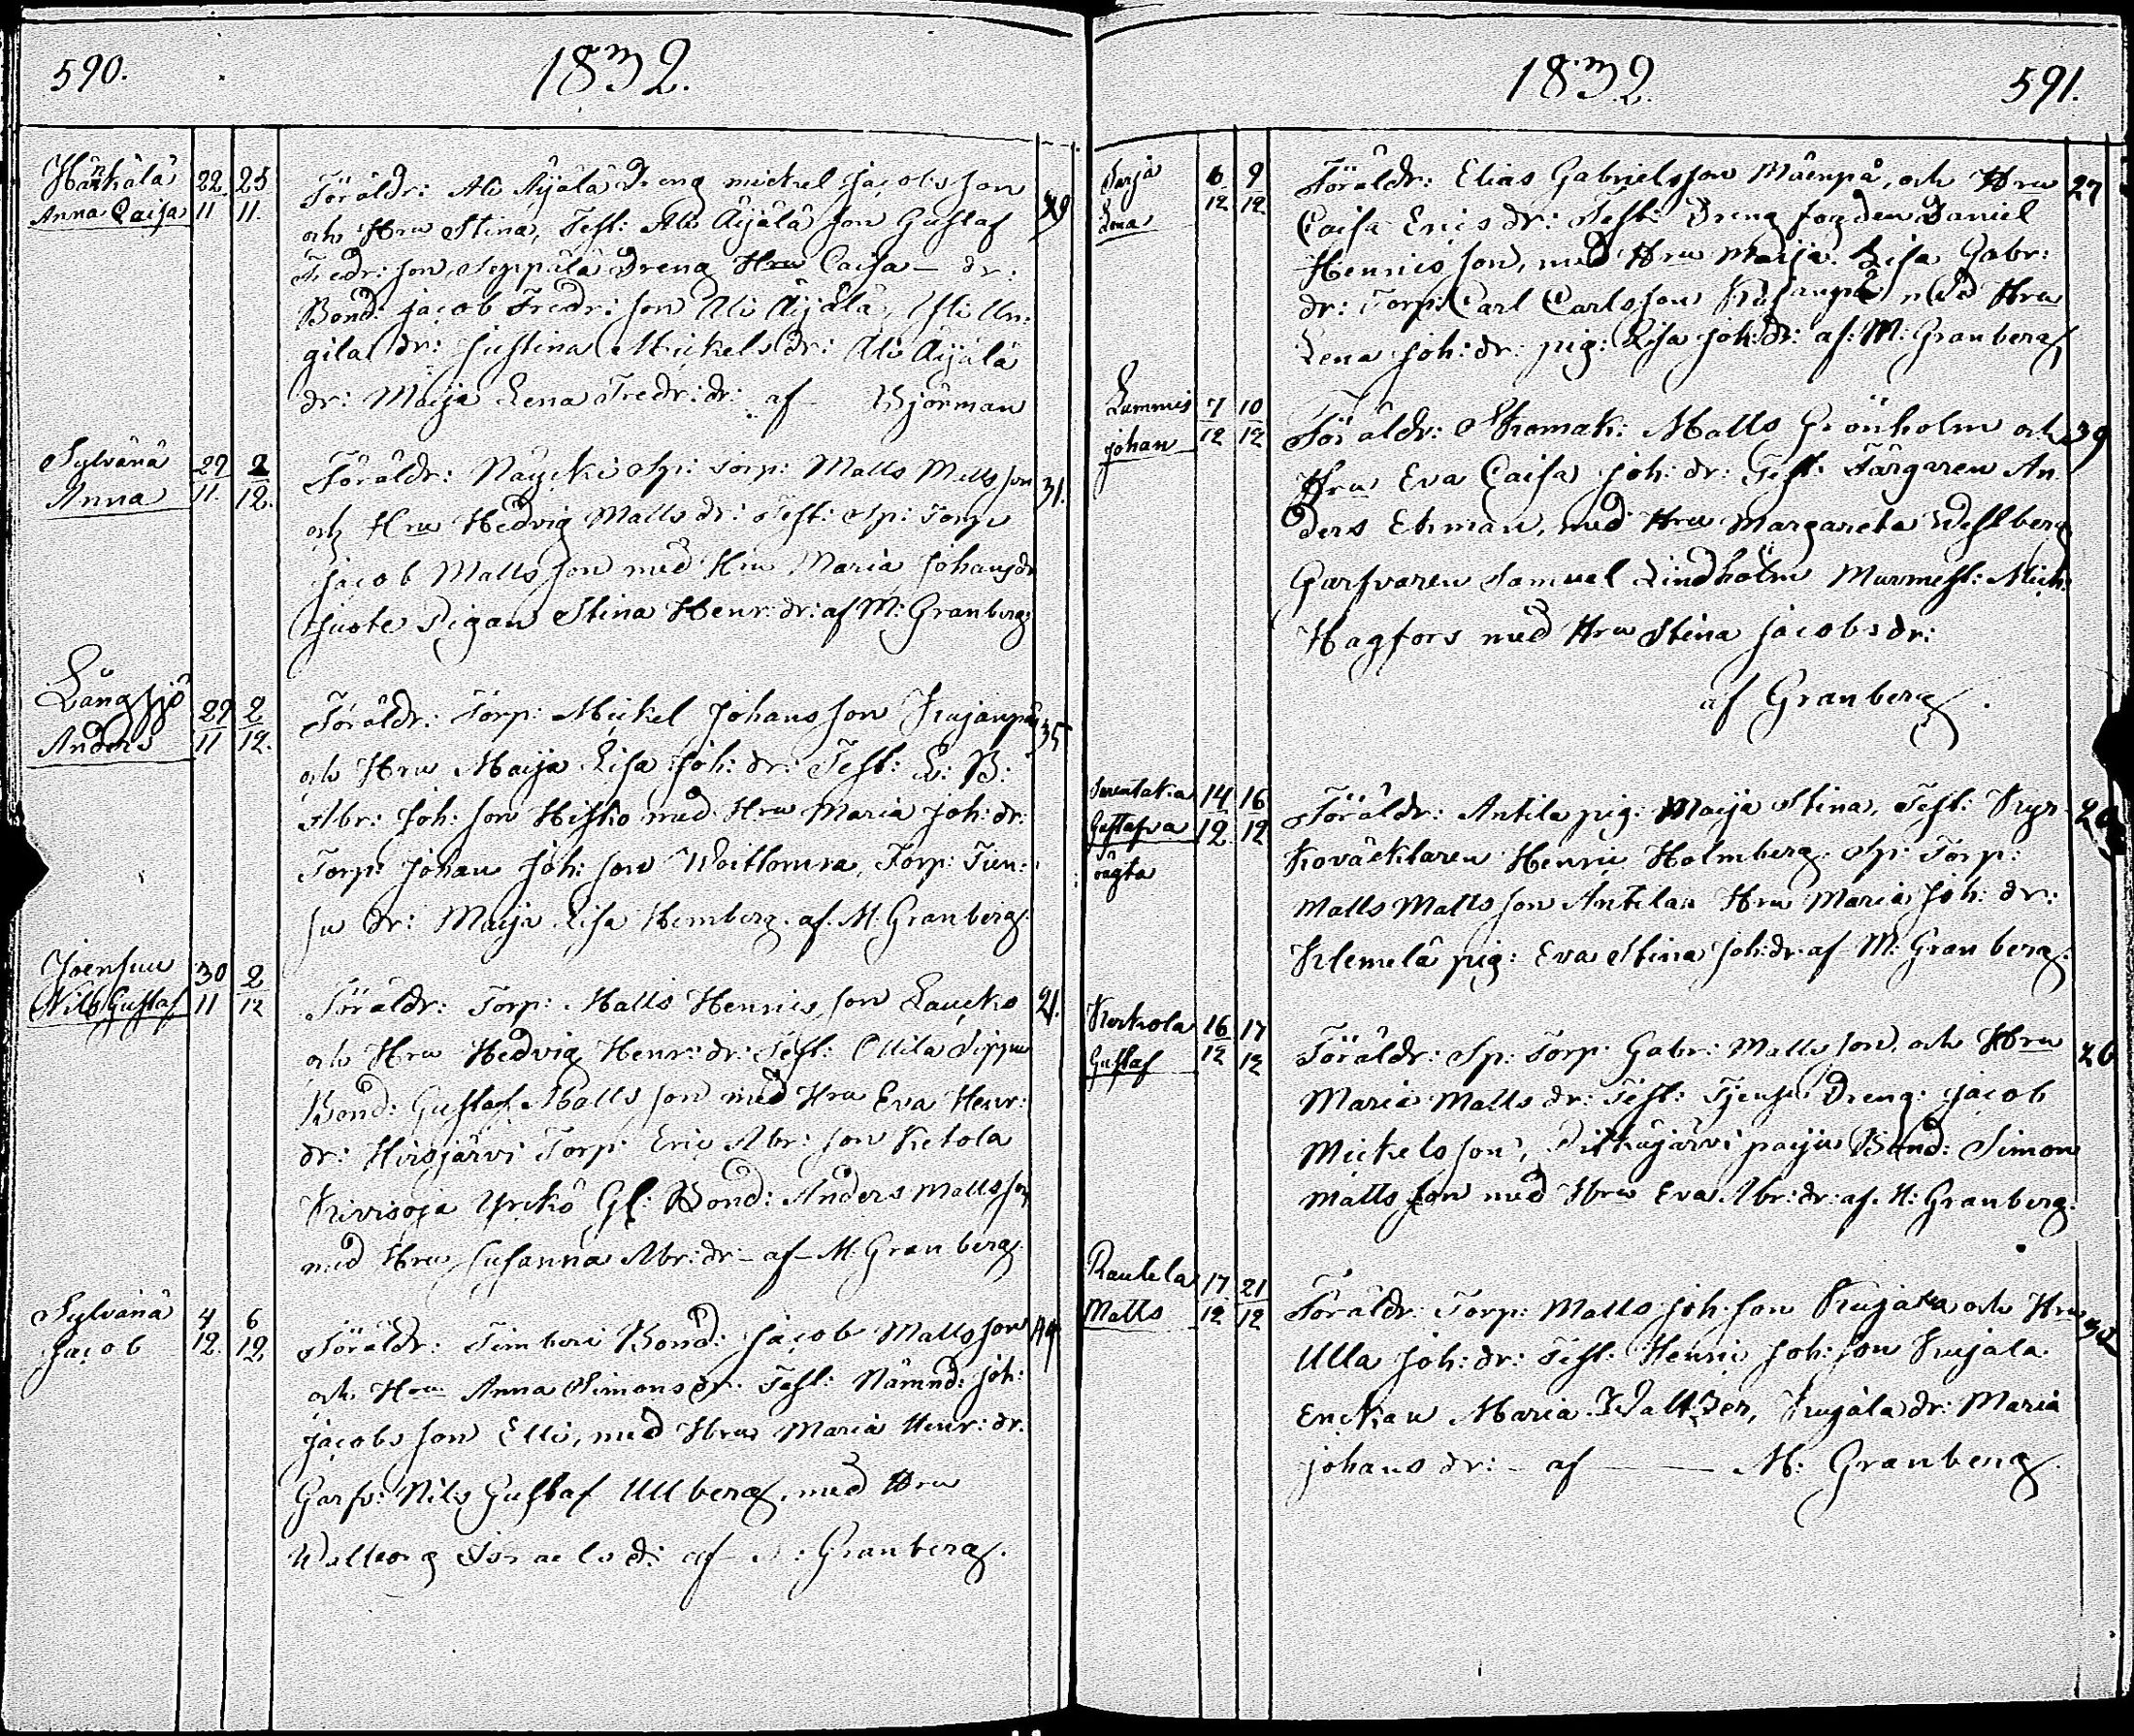 590.
1832.
Härkälä 22/11 25/11
Anna Caisa
Föräldr: Ali Äijälä Dreng mickel Jacobsson 29
och Hru Stina, Test: Ali Äijälä son Gustaf
Fredr: son, Seppälä Dreng Hru Caisa - dr:
Bond: Jacob Fredr: son Ali Äijälä,
gila dr: Justina Mickels dr: Ali Äijälä
dr: Maija Lena Fredr: dr: af Björman
Sylvänä 29/11 2/12
Anna
Föräldr: Näycki Sp: torp: Matts Matts son 31.
och Hru Hedvig Matts dr: Test: Sp: Torp:
Jacob Matts son med Hru Maria Johans dr
Juote Pigan Stina Henr: dr: af M: Granberg
Långsjö 29/11 2/12
Anders
Föräldr: Torp: Mickel Johans son Kujanpä 35
och Hru Maija Lisa Joh: dr: Test: L: B:
Abr: Joh: son Hisko med Hru Maria Joh: dr:
Torp: Johan Joh: son Woitlomra, Torp:
su dr: Maija Lisa Hemberg. af. M. Granberg.
Joensuu 30/11 2/12
Nils Gustaf
Föräldr: Torp: Matts Henrics son Laucko 21.
och Hru Hedvig Henr: dr: Test: Ollila Sippu
Bond: Gustaf Matts son med Hru Eva Henr:
dr: Hirsjärvi Torp: Eric Abr: son Ketola
Kivisoja Yrckö Gl: Bond: Anders Mattsson
med Hru Susanna Abr: dr - af - M. Granberg.
Sylvänä 4/12 6/12
Jacob
Föräldr: Timberi Bond: Jacob Matts son 44
och Hru Anna Simons dr: Test: Nämnd: Joh:
Jacobs son Elli, med Hru Maria Henr: dr.
Garfv: Nils Gustaf Ullberg, med Hru
Walborg Israels d: af M: Granberg.
1832.
591.
Sarja 6/12 9/12
Lena
Föräldr: Elias Gabrielsson Mäenpä, och Hru 27
Caisa Erics dr: Test: Dreng fogden Daniel
Henrics son, med Hru Maija Lisa Gabr:
dr: Torp: Carl Carlsson Kujanpä med Hru
Lena Joh: dr: pig: Lisa Joh: dr: af: M: Granberg
Lummis 7/12 10/12
Johan
Föräldr: Skomak: Matts Grönholm och 39
Hru Eva Caisa Joh: dr: Test: Färgaren An
ders Ekman, med Hru Margareta Westberg
Garfvaren Samuel Lindholm Murmest: Mich:
Hagfors med Hru Stina Jacobs dr:
af Granberg.
14/12 16/12
Gustafva
oägta
Föräldr: Antila pig: Maija Stina, Test: Kyr-
kovácktaren Henric Holmberg. Sp: Torp:
Matts Matts son Antilan Hru Maria Joh: dr:
Klemelä pig: Eva Stina Joh: dr. af M: Granberg.
Korkola 16/12 17/12
Gustaf
Föräldr: Sp: Torp: Gabr: Matts son, och Hru 26
Maria Matts dr: Test: Tjensu Dreng: Jacob
Mickelsson, Pitkäjärvi paiju Bond: Simon
Matts son med Hru Eva Abr: dr: af. M: Granberg.
Rautela 17/12 21/12
Matts
Föräldr: Torp: Matts Joh: son Kujala och Hru 32
Ulla Joh: dr: Test: Henric Joh: son Kujala.
Enckan Maria Wallder, Kujala dr: Maria
Johans dr: - af - M: Granberg.